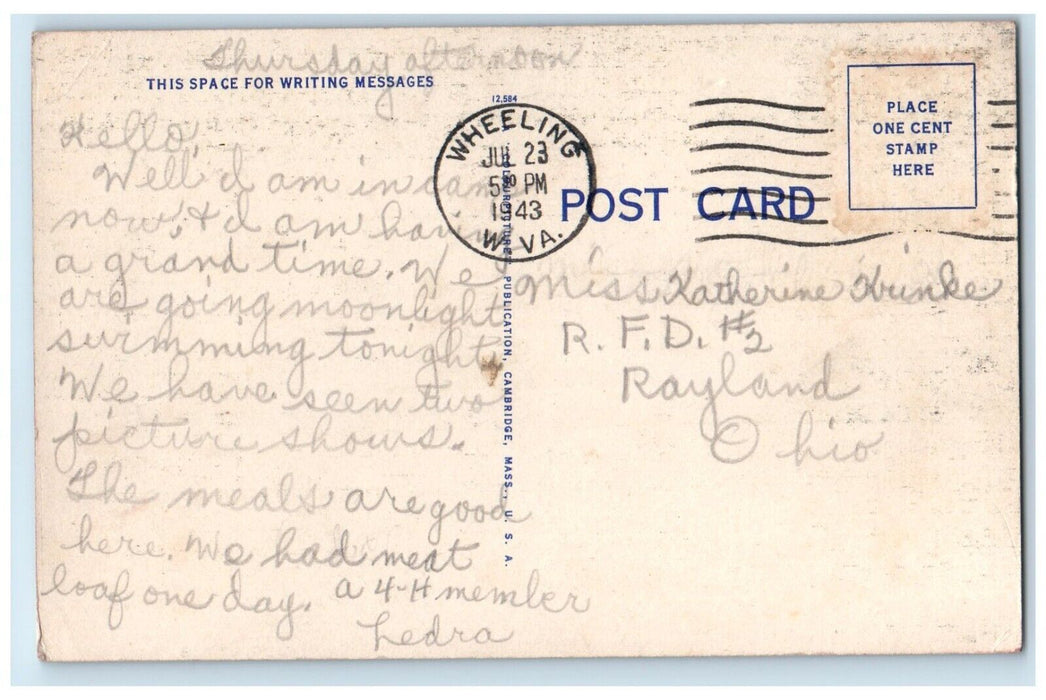 Thursday afternoon
THIS SPACE FOR WRITING MESSAGES
Hello,
Well I am in camp
now, & I am having
a grand time. We
are going moonlight
swimming tonight.
We have seen two
picture shows.
The meals are good
here. We had meat
loaf one day. a 4-H member
Ledra
12,584
WHEELING
JUL 23
5 30 PM
1943
W. VA.
PUBLICATION, CAMBRIDGE, MASS., U. S. A.
POST CARD
PLACE
ONE CENT
STAMP
HERE
Miss Katherine Krinke
R. F. D. #2
Rayland
Ohio